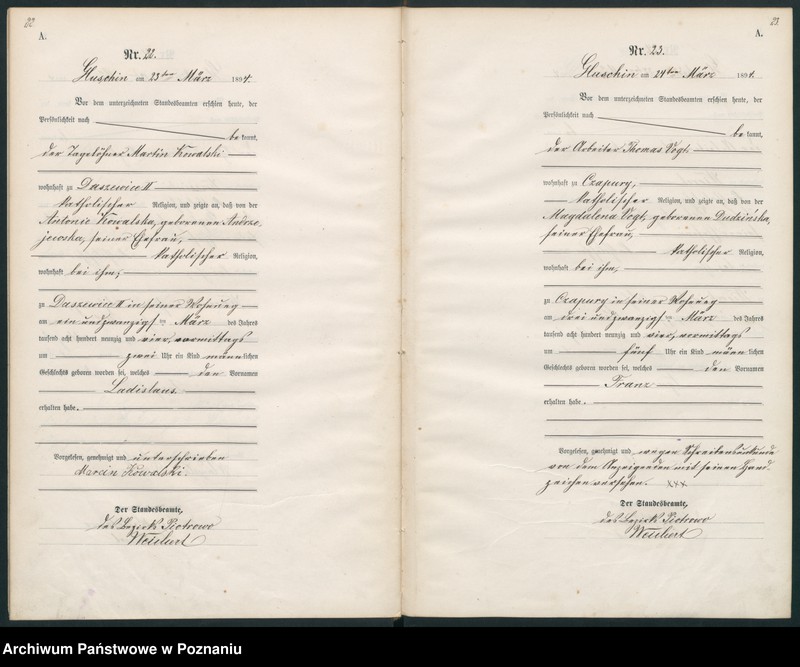 22
A.
Nr. 22.
Gluschin am 23ten März 1894.
Vor dem unterzeichneten Standesbeamten erschien heute, der
Persönlichkeit nach
bekannt,
der Tagelöhner Martin Kowalski
wohnhaft zu Daszewice II
katholischer Religion, und zeigte an, daß von der
Antonie Kowalska, geborenen Andrze-
jewska, seiner Ehefrau,
katholischer Religion,
wohnhaft bei ihm,
zu Daszewice II in seiner Wohnung
am ein und zwanzigsten März des Jahres
tausend acht hundert neunzig und vier, vormittags
um zwei Uhr ein Kind männlichen
Geschlechts geboren worden sei, welches den Vornamen
Ladislaus
erhalten habe.
Vorgelesen, genehmigt und unterschrieben
Marcin Kowalski.
Der Standesbeamte,
des Bezirks Piotrowo
23
A.
Nr. 23.
Gluschin am 24ten März 1894.
Vor dem unterzeichneten Standesbeamten erschien heute, der
Persönlichkeit nach
bekannt,
der Arbeiter Thomas Vogt
wohnhaft zu Czapury,
katholischer Religion, und zeigte an, daß von der
Magdalena Vogt, geborenen Dudzińska,
seiner Ehefrau,
katholischer Religion,
wohnhaft bei ihm,
zu Czapury in seiner Wohnung
am drei und zwanzigsten März des Jahres
tausend acht hundert neunzig und vier, vormittags
um fünf Uhr ein Kind männlichen
Geschlechts geboren worden sei, welches den Vornamen
Franz
erhalten habe.
Vorgelesen, genehmigt und wegen Schreibensunkunde
von dem Anzeigenden mit seinem Hand-
zeichen versehen. xxx
Der Standesbeamte,
des Bezirks Piotrowo
Archiwum Państwowe w Poznaniu